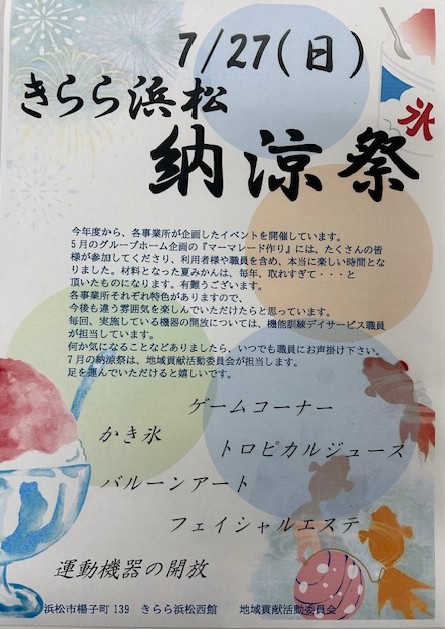 7/27(日)
きらら浜松
納涼祭
氷
今年度から、各事業所が企画したイベントを開催しています。
5月のグループホーム企画の『マーマレード作り』には、たくさんの皆
様が参加してくださり、利用者様や職員を含め、本当に楽しい時間とな
りました。材料となった夏みかんは、毎年、取れすぎて・・・と
頂いたものになります。有難うございます。
各事業所それぞれ特色がありますので、
今後も違う雰囲気を楽しんでいただけたらと思っています。
毎回、実施している機器の開放については、機能訓練デイサービス職員
が担当しています。
何か気になることなどありましたら、いつでも職員にお声掛け下さい。
7月の納涼祭は、地域貢献活動委員会が担当します。
足を運んでいただけると嬉しいです。
ゲームコーナー
かき氷
トロピカルジュース
バルーンアート
フェイシャルエステ
運動機器の開放
浜松市楊子町139 きらら浜松西館 地域貢献活動委員会